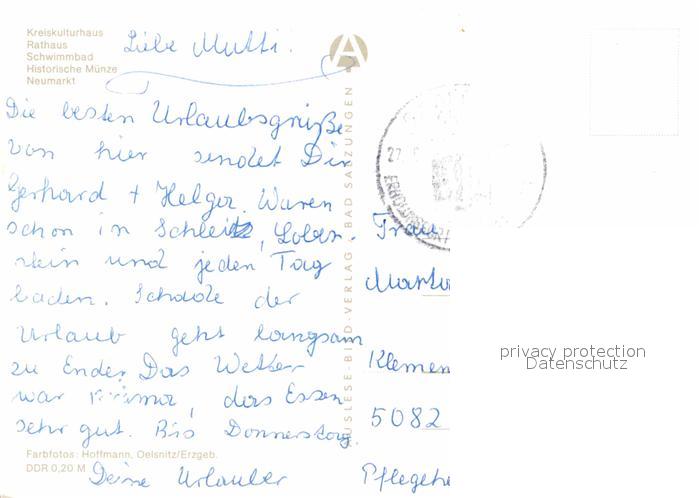 Kreiskulturhaus
Rathaus
Schwimmbad
Historische Münze
Neumarkt
Liebe Mutti.
Die besten Urlaubsgrüße
von hier sendet Dir
Gerhard + Helga. Waren
schon in Schleitz, Loben-
stein und jeden Tag
baden. Schade der
Urlaub geht langsam
zu Ende. Das Wetter
war prima, das Essen
sehr gut. Bis Donnerstag.
Deine Urlauber
Farbfotos: Hoffmann, Oelsnitz/Erzgeb.
DDR 0,20 M
AUSLESE-BILD-VERLAG · BAD SALZUNGEN
A
27.
ERHOLUNGSORT
Frau
Marta
Klemen
5082
Pflegehe
privacy protection
Datenschutz